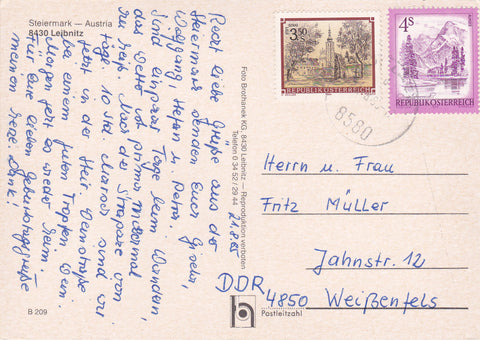 Steiermark — Austria
8430 Leibnitz
21.8.85
Recht liebe Grüße aus der
Steiermark senden Euch Giesela,
Wolfgang, Stefan u. Petra.
Sind ein paar Tage beim Wandern
das Wetter ist prima manchmal
zu heiß. Nach der Strapaze von
tägl. 10 Std. Marsch sind wir
jetzt in der Steir. Weinstraße
bei einem guten Tropfen Wein.
Morgen geht es wieder heim.
Für Eure lieben Geburtstagsgrüße
meinen Dank!
B 209
Foto Brothanek KG, 8430 Leibnitz — Reproduktion verboten
Telefon 0 34 52/29 44
3.50
REPUBLIK ÖSTERREICH
4S
REPUBLIK ÖSTERREICH
8580
Herrn u. Frau
Fritz Müller
Jahnstr. 12
DDR
4850 Weißenfels
Postleitzahl